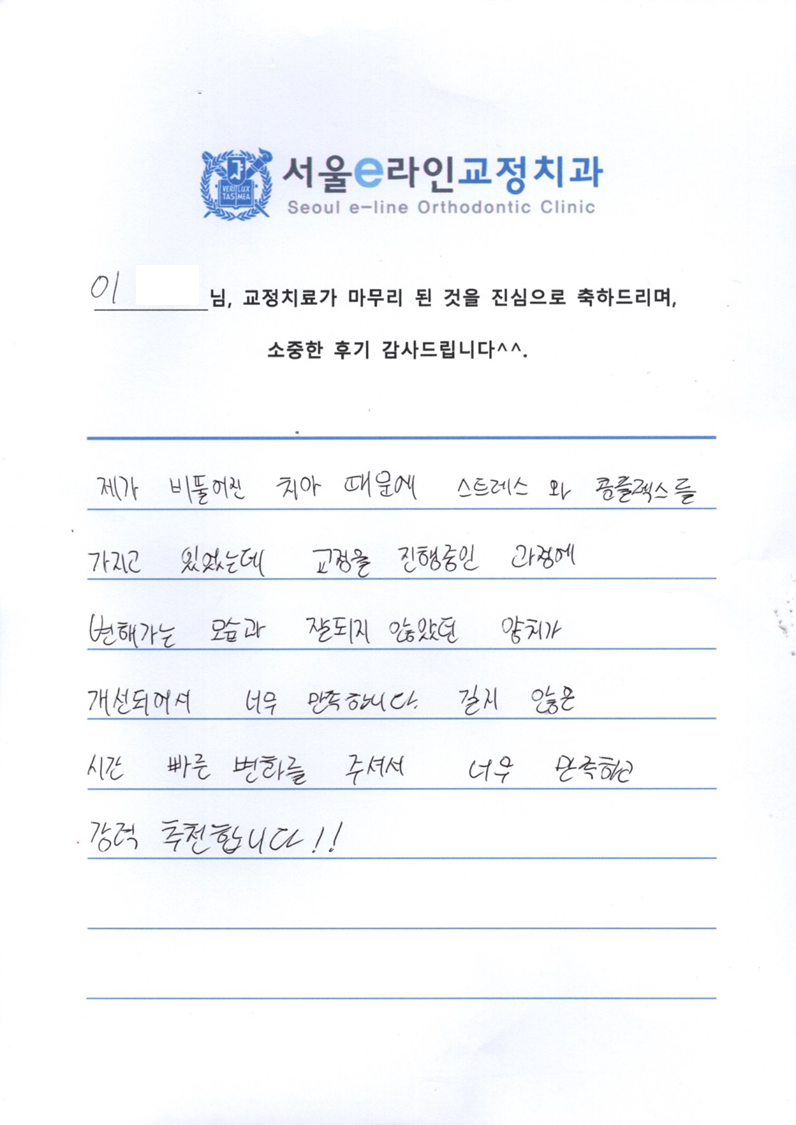 VERI LUX
TAS MEA
서울e라인교정치과
Seoul e-line Orthodontic Clinic
이 님, 교정치료가 마무리 된 것을 진심으로 축하드리며,
소중한 후기 감사드립니다^^.
제가 비뚤어진 치아 때문에 스트레스 와 콤플렉스를
가지고 있었는데 교정을 진행중인 과정에
변해가는 모습과 잘되지 않았던 양치가
개선되어서 너무 만족합니다. 길지 않은
시간 빠른 변화를 주셔서 너무 만족하고
강력 추천합니다!!